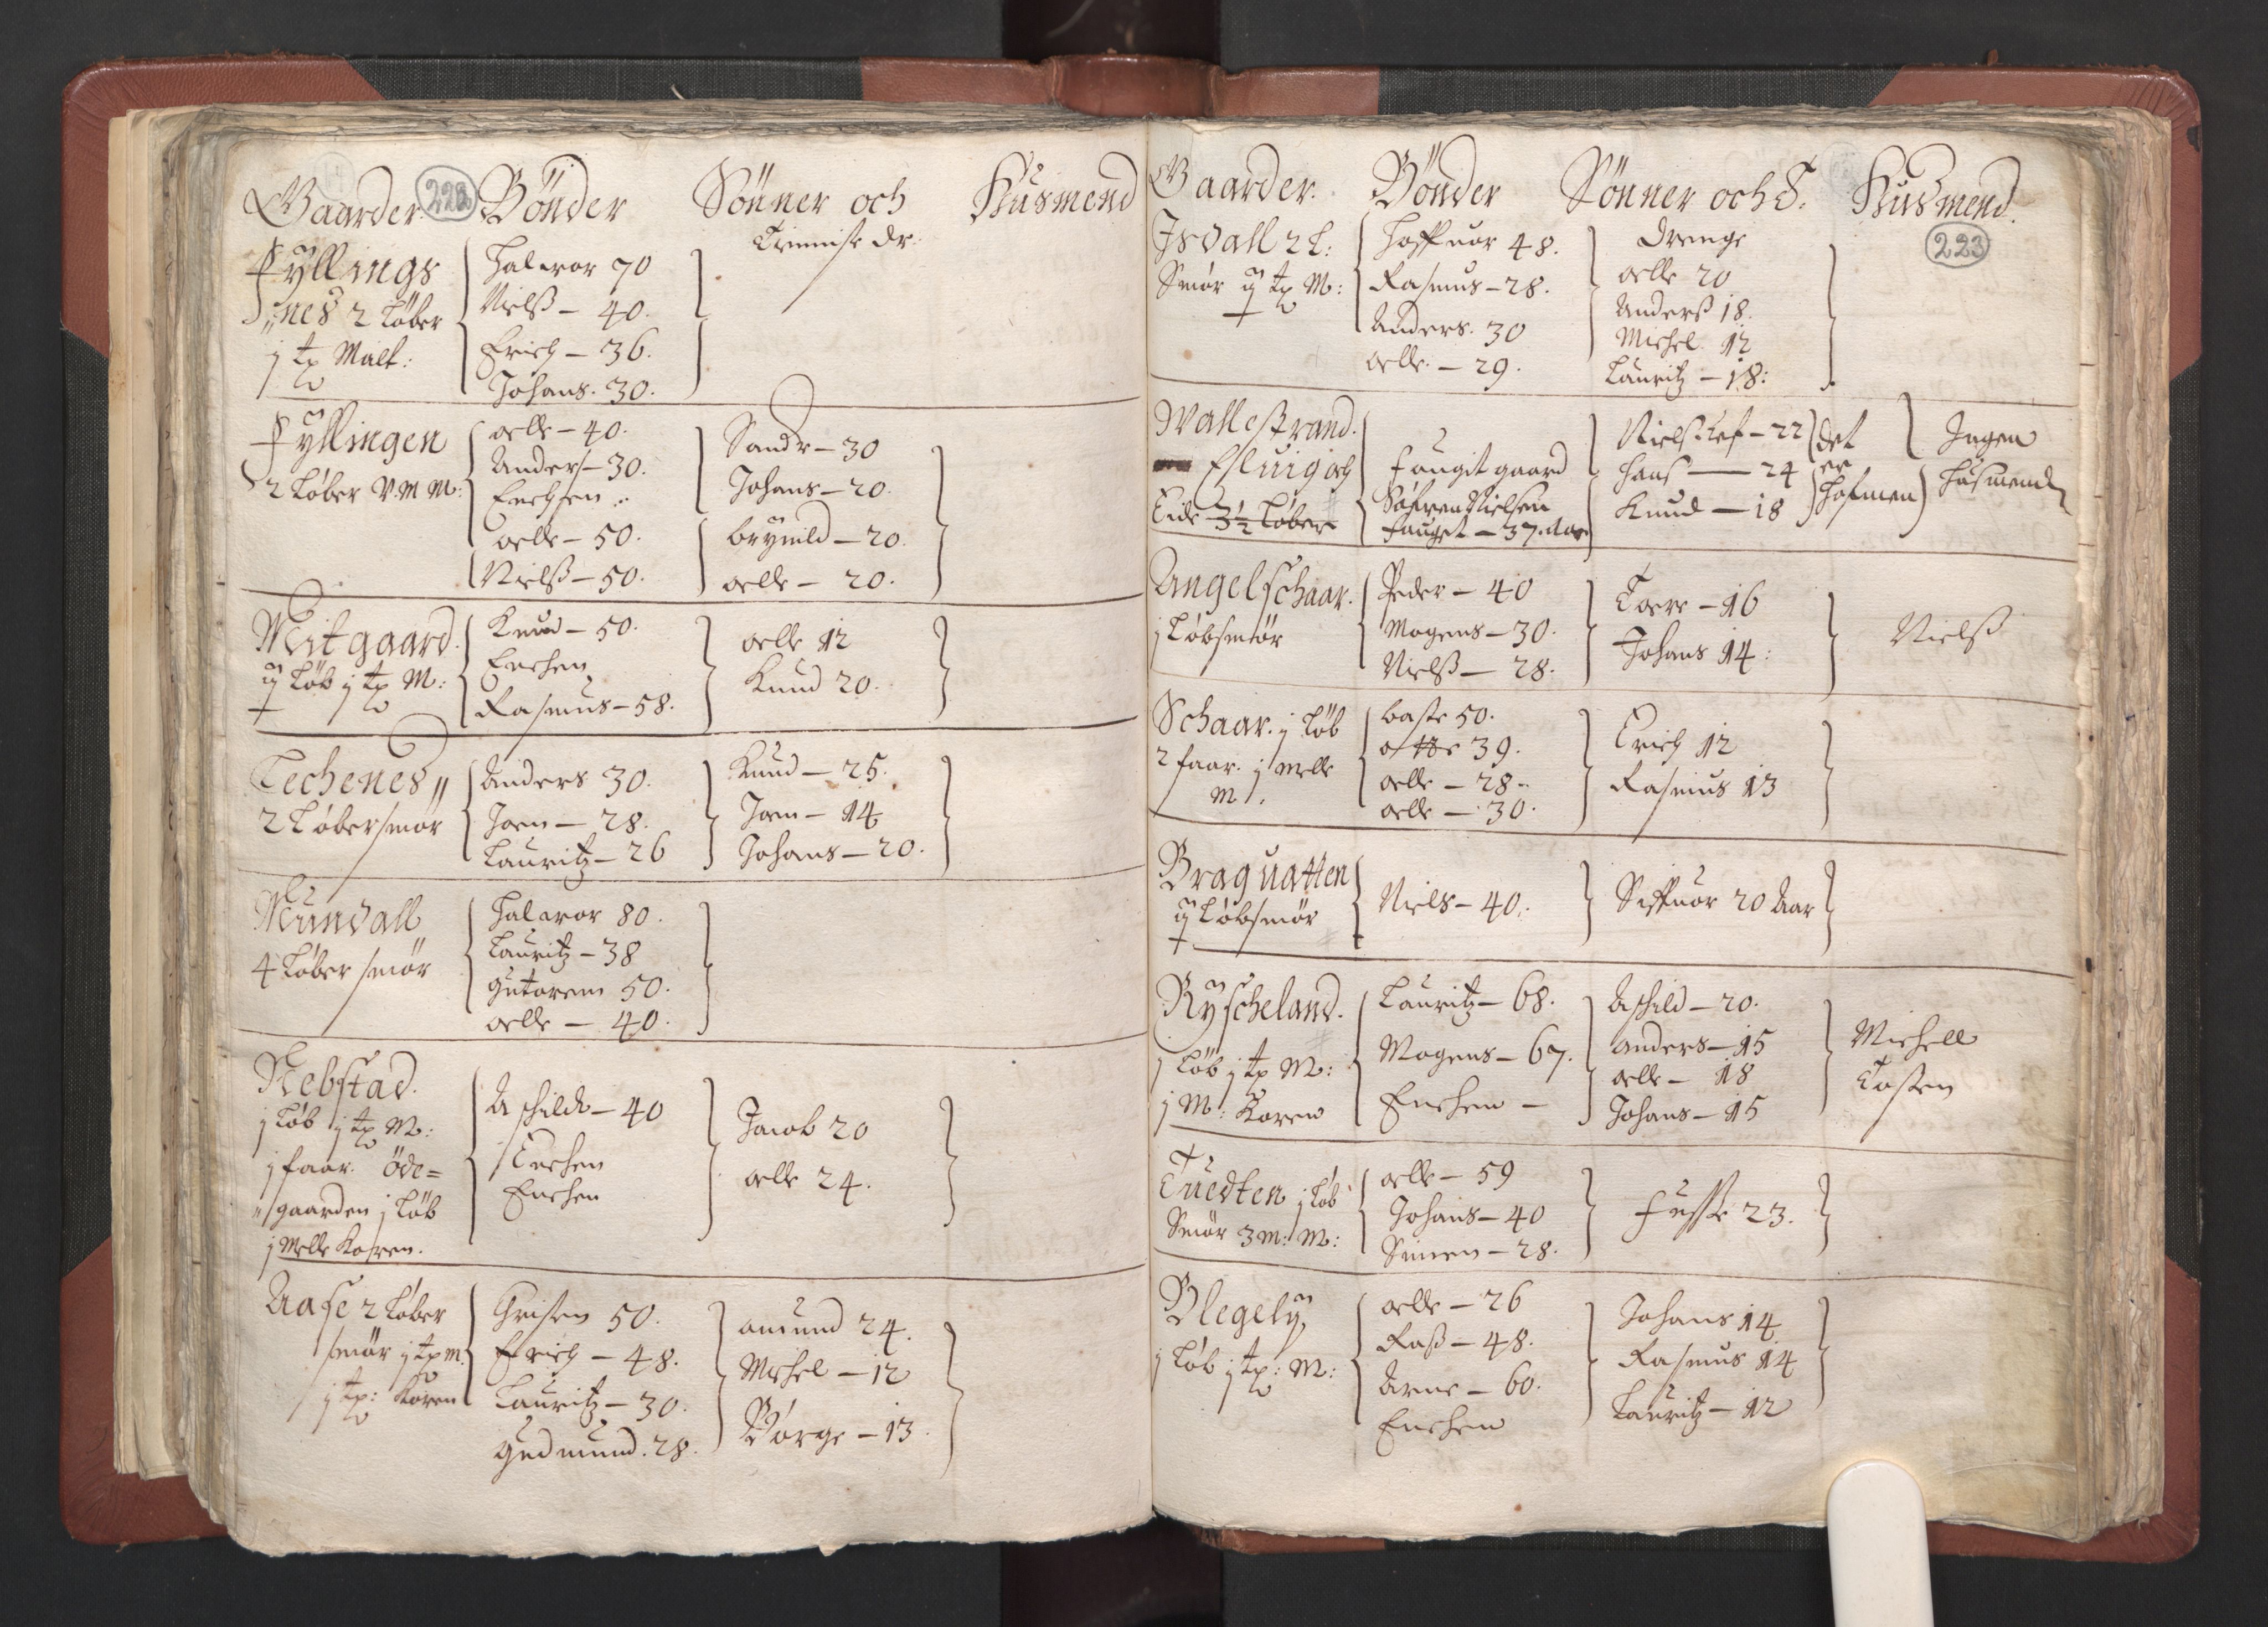 Gaarder 222 Bönder Sönner och Husmend
Tienniste dr:
Fyllings
nes 2 Løber
j tp Malt:
Halvor 70
Nielß – 40.
Erich – 36.
Johans. 30.
Fyllingen
2 Løber V. M M:
olle – 40.
Anders – 30.
Enchsen
olle – 50.
Nielß – 50.
Sandr – 30
Johans – 20.
brynild – 20.
olle – 20.
Mitgaard.
ij Løb j tp M:
Knud – 50.
Enchen
Rasmus – 58.
olle 12
Knud 20.
Techenes
2 Løber smör
Anders 30.
Joen – 28.
Lauritz – 26
Knud – 25.
Joen – 14
Johans – 20.
Mundall
4 Løber smör
Halvor 80.
Lauritz – 38
gutorem 50.
olle – 40.
Nebstad.
j Løb j tp M:
j faar. Öde=
gaarden j Løb
j Melle Koren.
Aschilde – 40
Enchen
Jacob 20
olle 24.
Aase 2 Løber
smör j tp m.
j tp: Koren
Christen 50.
Erich – 48.
Lauritz – 30.
gudmund. 28.
amund 24.
Michel – 12
Börge – 13.
Gaarder. Bönder Sönner och T. Husmend.
223
Isdall 2 L:
Smör ij tp M:
Hoffuor 48.
Rasmus – 28.
Anders. 30
olle. – 29.
Drenge
olle 20
Anderß 18.
Michel. 12
Lauritz – 18:
Wallestrand.
Eide 3½ Løber
fougit gaard
Söfren Nielsen
fouget – 37. Aar
Nielß – 22
Hans – 24
Knud – 18
det
er
Hofmen
Ingen
Husmend
Angelschaar.
j Løb smör
Peder – 40
Mogens – 30.
Nielß – 28.
Tore – 16
Johans 14:
Nielß
Schaar. j Løb
2 faar. j Melle
M.
baste 50.
otte 39.
olle – 28.
olle – 30.
Erich 12
Rasmus 13
Braguatten
ij Løb smör
Niels – 40.
Siffuor 20 Aar
Ryscheland.
j Løb j tp M:
j M: Koren
Lauritz – 68.
Mogens – 67.
Enchen –
Aschild – 20.
anders – 15
olle – 18
Johans – 15
Michell
Tosten
Tuedten j Løb
Smör 3 m: M:
olle – 59
Johans – 40
Simen – 28.
fusse 23.
Blegely
j Løb j tp: M:
olle – 26
Raß – 48.
Arne – 60.
Enchen
Johans 14
Rasmus 14
Lauritz – 12